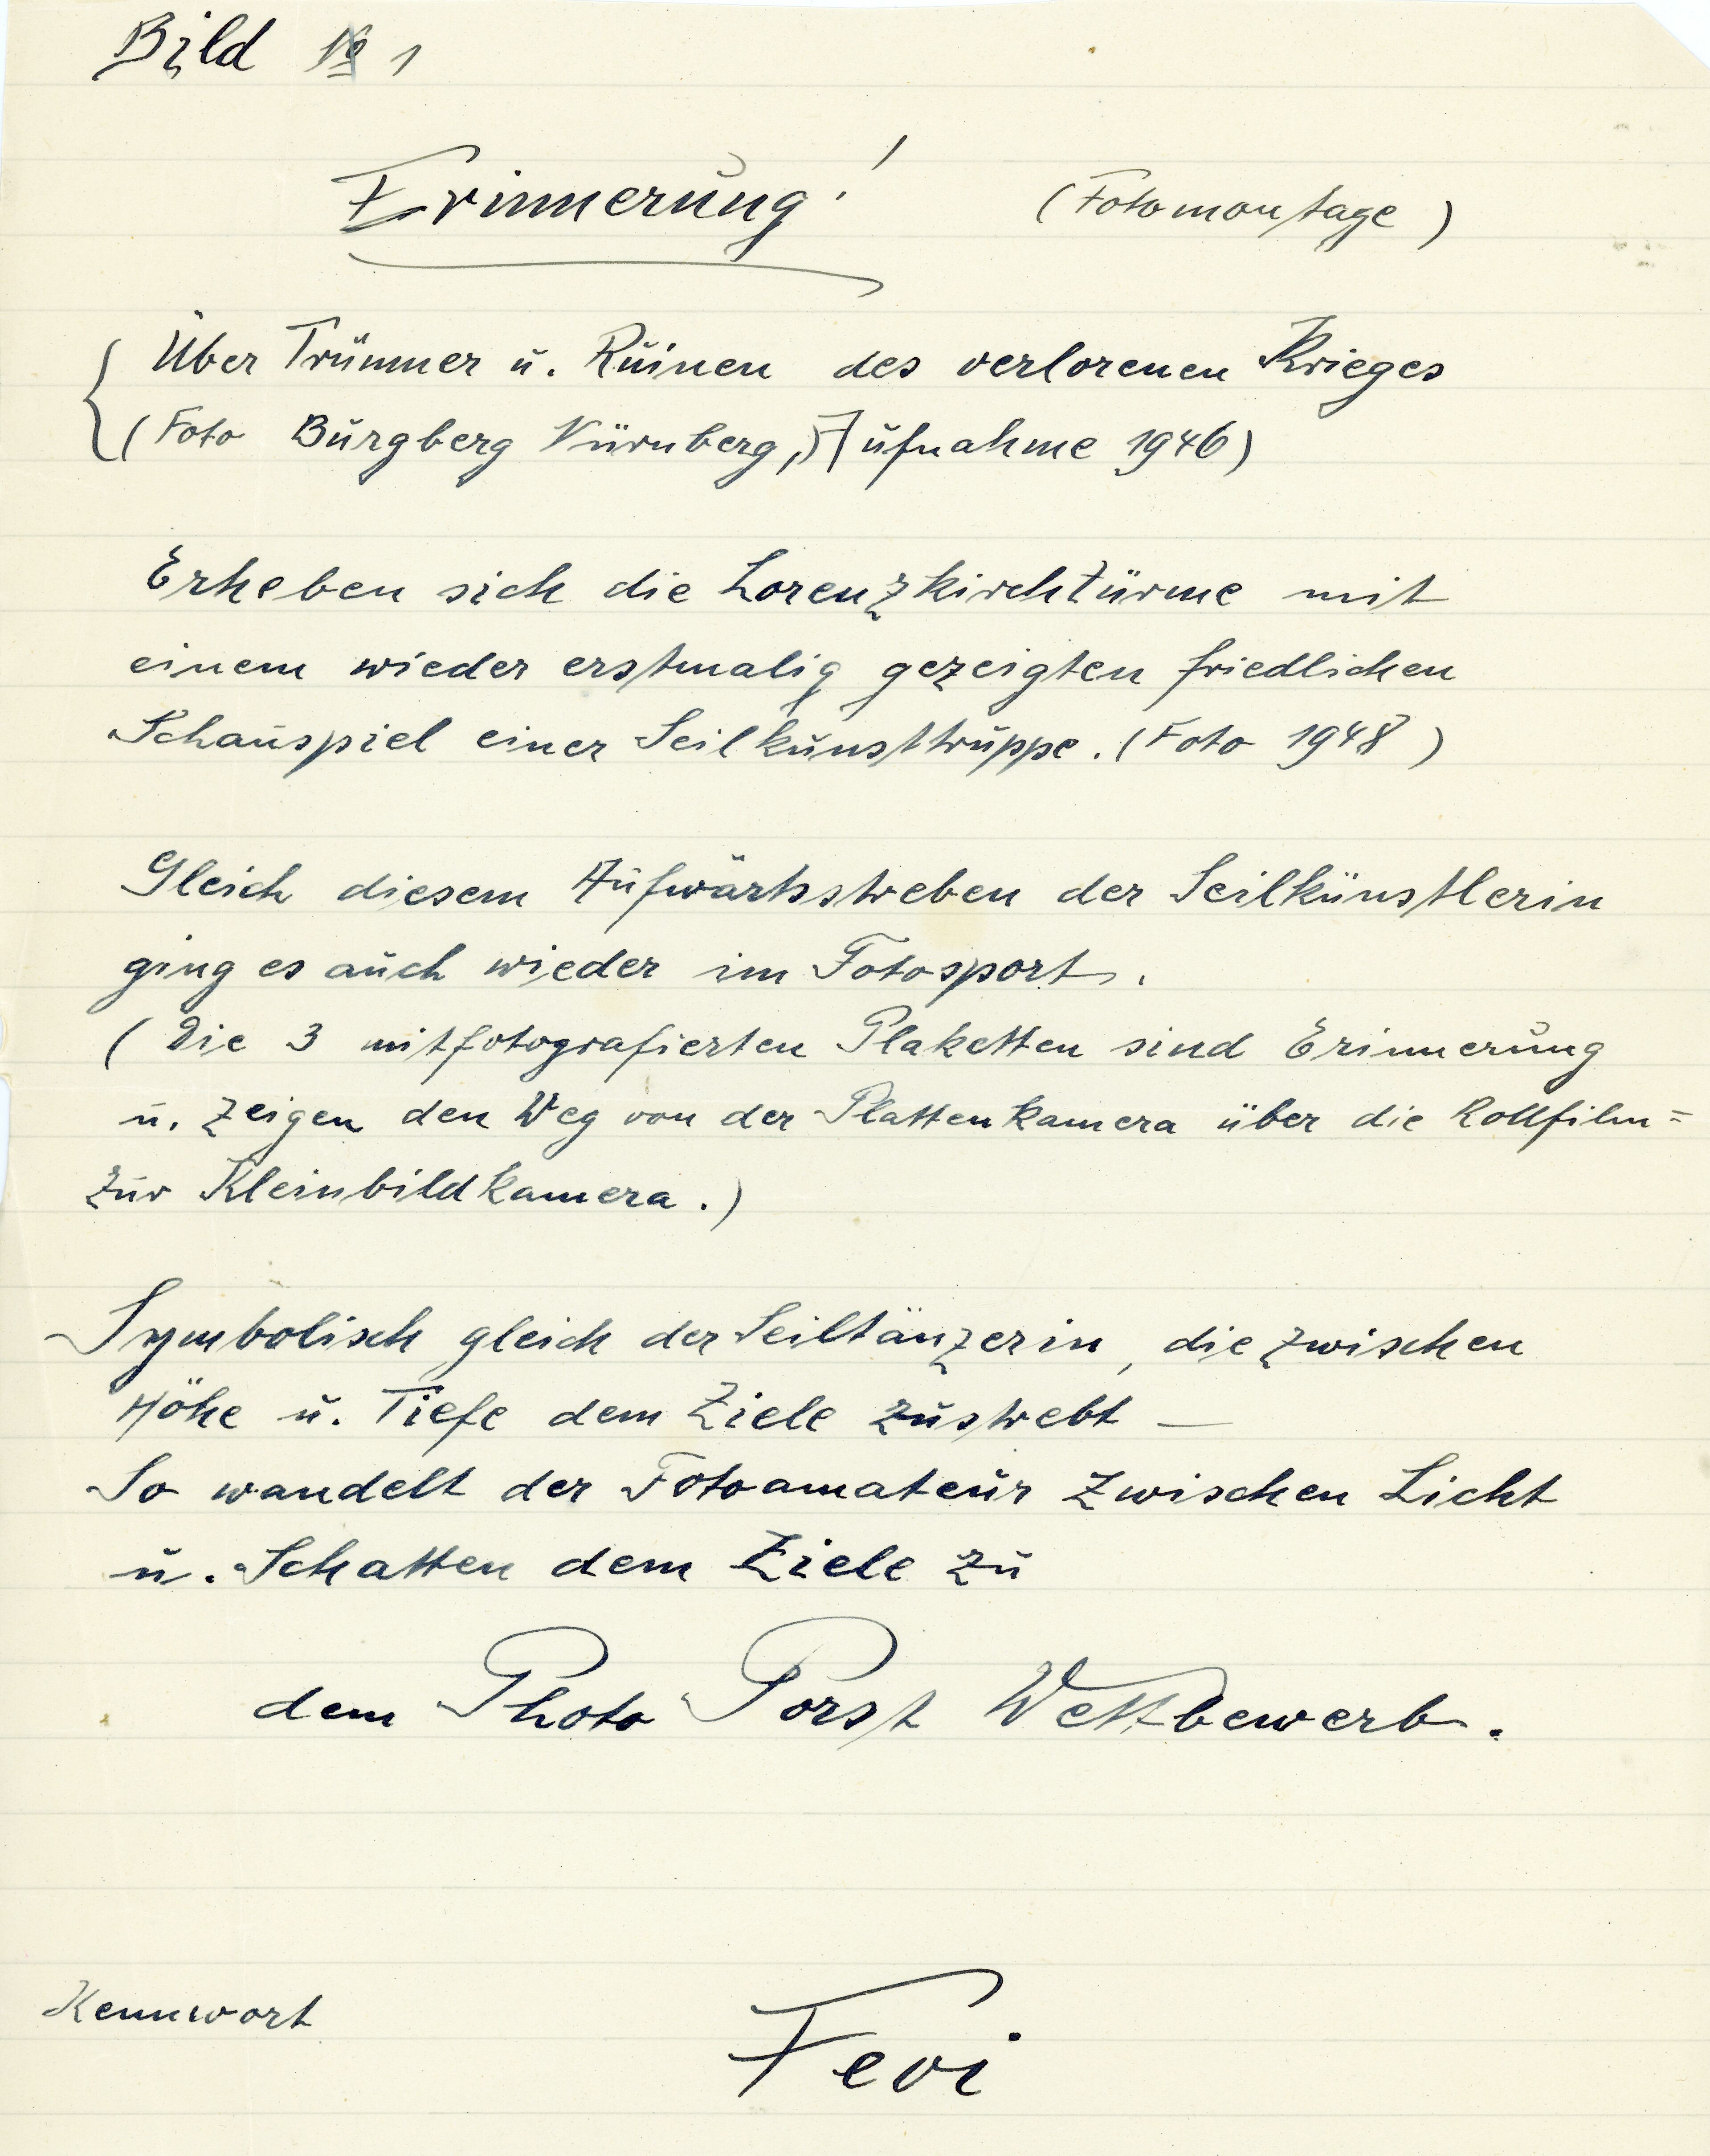 Bild № 1
Erinnerung! (Fotomontage)
Über Trümmer u. Ruinen des verlorenen Krieges
(Foto Burgberg Nürnberg, Aufnahme 1946)
Erheben sich die Lorenzkirchtürme mit
einem wieder erstmalig gezeigten friedlichen
Schauspiel einer Seilkunsttruppe. (Foto 1948)
Gleich diesem Aufwärtsstreben der Seilkünstlerin
ging es auch wieder im Fotosport.
(Die 3 mitfotografierten Plaketten sind Erinnerung
u. zeigen den Weg von der Plattenkamera über die Rollfilm=
zur Kleinbildkamera.)
Symbolisch gleich der Seiltänzerin, die zwischen
Höhe u. Tiefe dem Ziele zustrebt —
So wandelt der Fotoamateur zwischen Licht
u. Schatten dem Ziele zu
dem Photo Porst Wettbewerb.
Kennwort Fevi